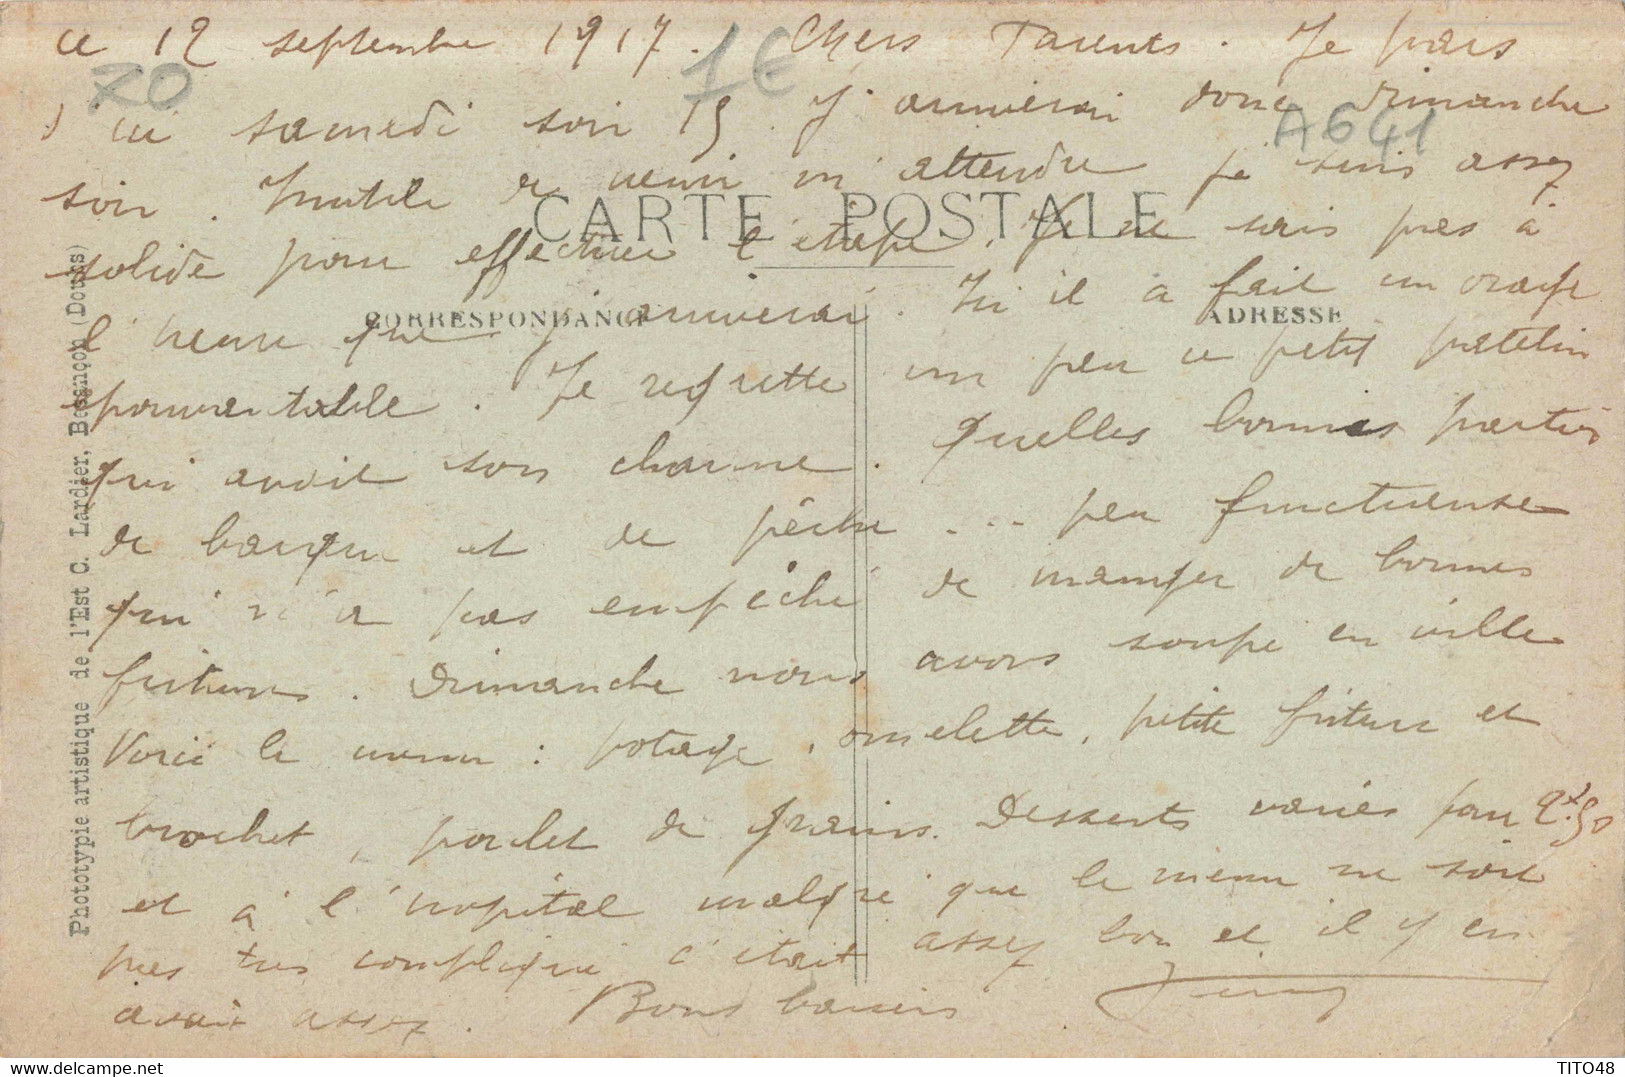 ce 12 septembre 1917. Chers Parents. Je pars
d'ici samedi soir 15. J'arriverai donc dimanche
soir. Inutile de venir m'attendre je suis assez
solide pour effectuer l'étape. Je ne sais pas à
l'heure que j'arriverai. Ici il a fait un orage
épouvantable. Je regrette un peu ce petit patelin
qui avait son charme. Quelles bonnes parties
de barque et de pêche ... peu fructueuse
qui n'a pas empêché de manger de bonnes
fritures. Dimanche nous avons soupé en ville
Voici le menu : potage, omelette, petite friture et
brochet, poulet de grains. Desserts variés pour 2f.50
et à l'hopital malgré que le menu ne soit
pas très compliqué c'était assez bon et il y en
avait assez. Bons baisers
70
1€
A641
CARTE POSTALE
CORRESPONDANCE
ADRESSE
Phototypie artistique de l'Est C. Lardier, Besançon (Doubs)
TITO48